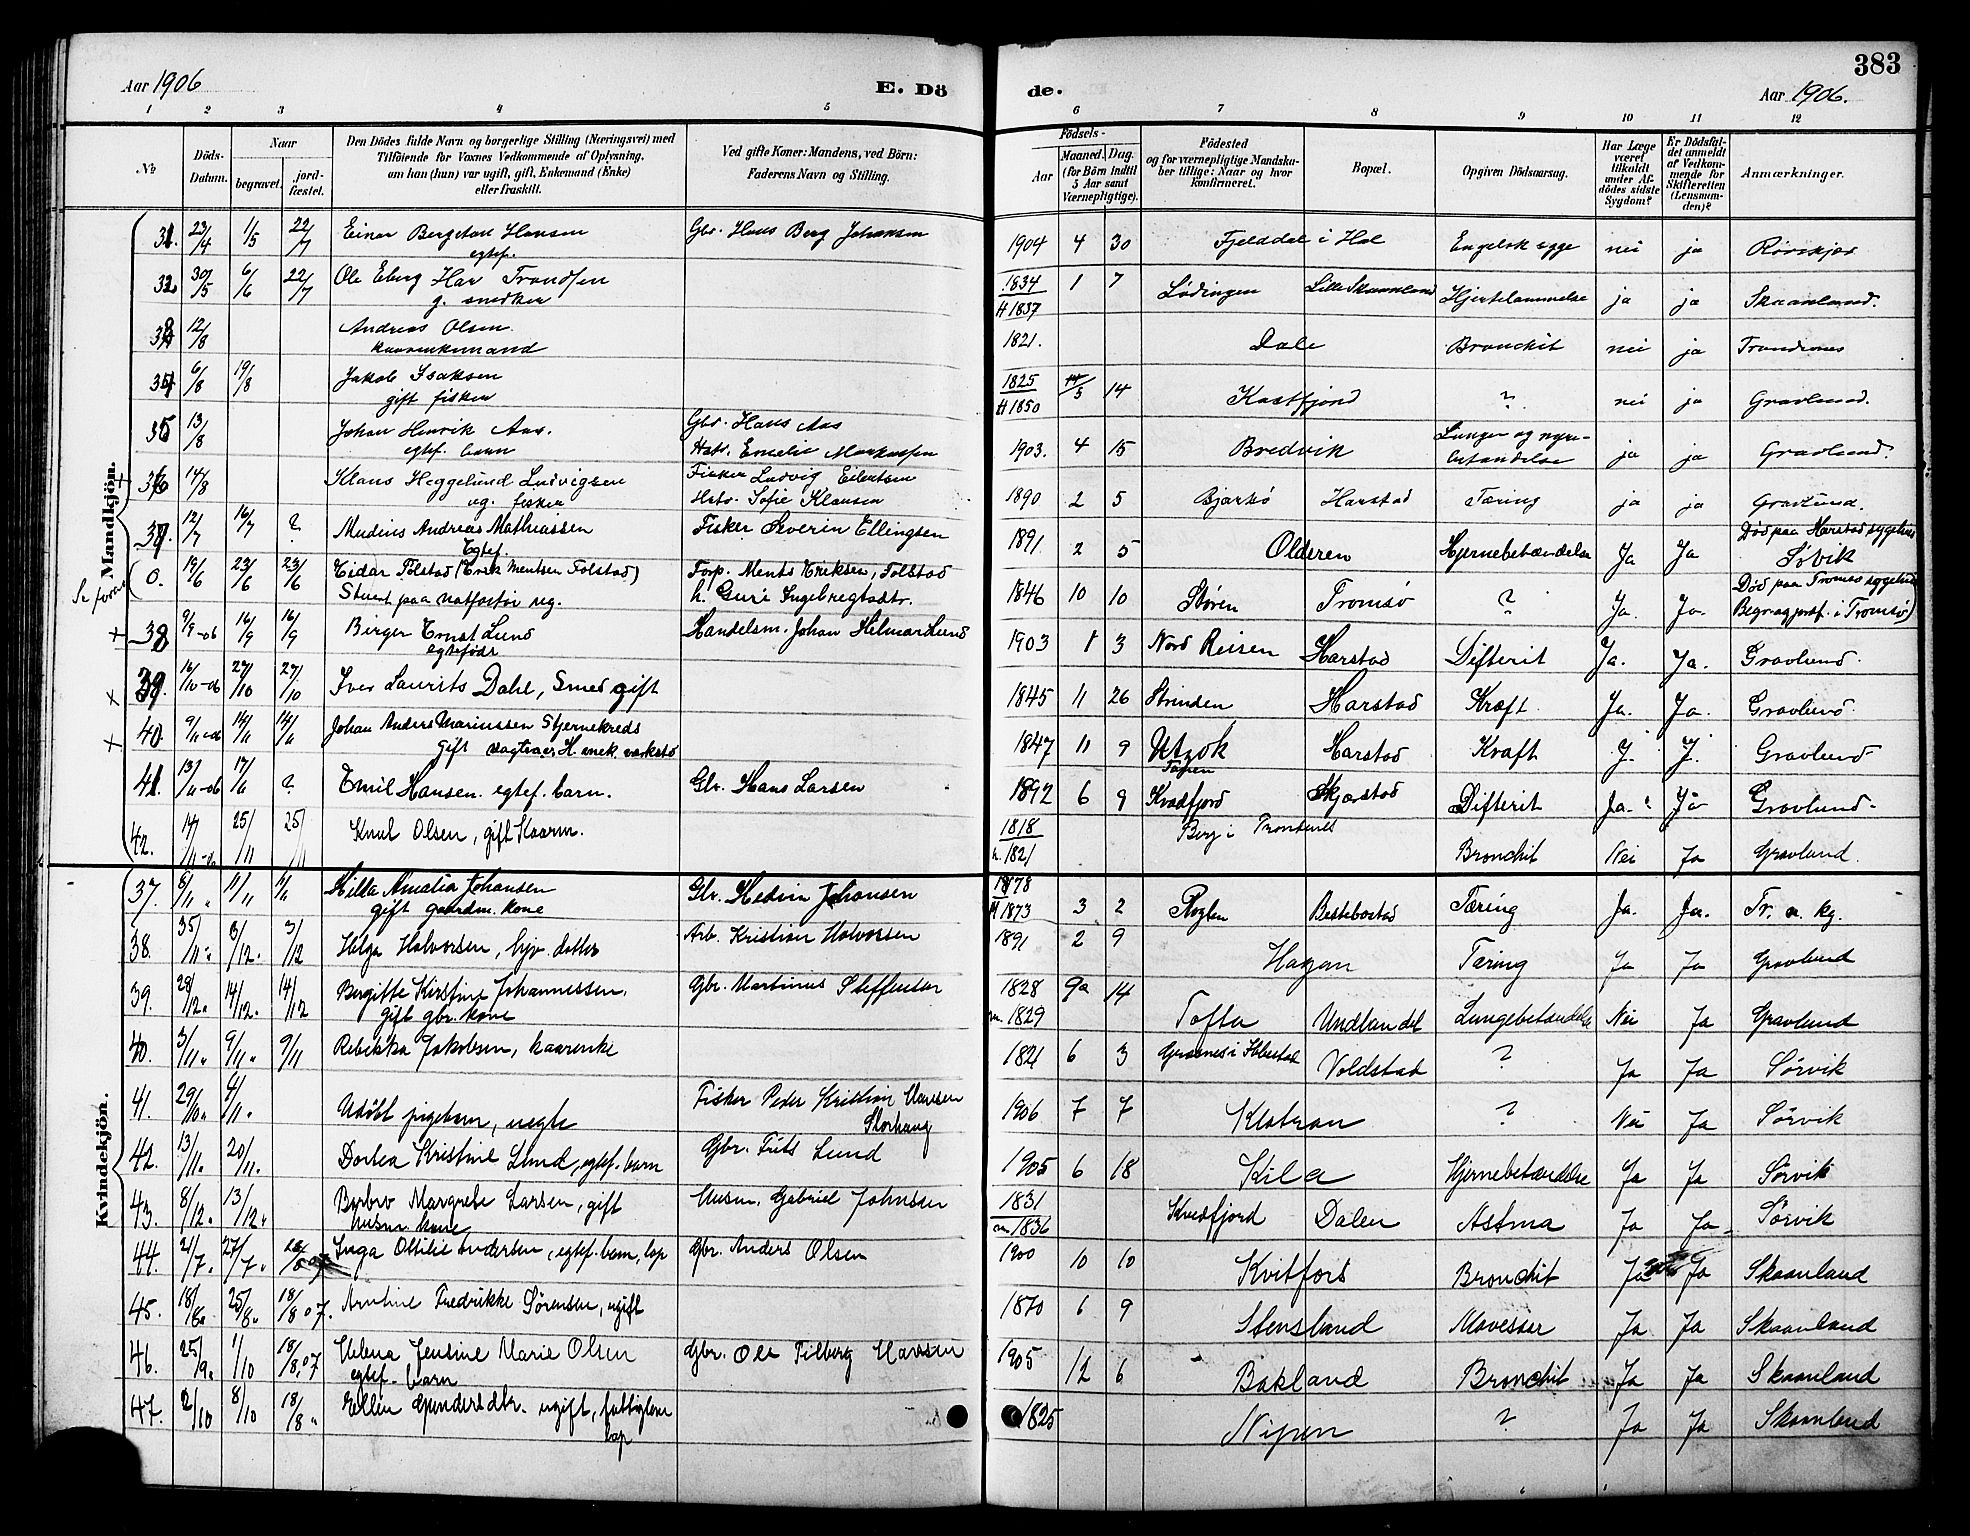 383
Aar 1906
E. Döde.
Aar 1906.
1 2 3 4 5 6 7 8 9 10 11 12
No
Döds-Datum.
Naar
begravet.
jord-fæstet.
Den Dödes fulde Navn og borgerlige Stilling (Næringsvei) med
Tilföiende for Voxnes Vedkommende af Oplysning,
om han (hun) var ugift, gift, Enkemand (Enke)
eller fraskilt.
Ved gifte Koner: Mandens, ved Börn:
Faderens Navn og Stilling.
Födsels-
Aar
Maaned. Dag.
(for Börn indtil
5 Aar samt
Værnepligtige).
Födested
og for værnepligtige Mandska-
ber tillige: Naar og hvor
konfirmeret.
Bopæl.
Opgiven Dödsaarsag.
Har Læge
været
tilkaldt
under Af-
dödes sidste
Sygdom?
Er Dödsfal-
det anmeldt
af Vedkom-
mende for
Skifteretten
(Lensman-
den)?
Anmærkninger.
Mandkjön.
31. 23/4 1/5 22/7 Einar Bergeton Hansen Gbr. Hans Berg Johansen 1904 4 30 Fjelddal i Hol Engelsk syge nei ja Rönskjær
egtef.
32 30/5 6/6 22/7 Ole Eberg Har Trondsen 1834 1 7 Lödingen Lille Skaanland Hjertelammelse ja ja Skaanland.
g. snedker H 1837
33 12/8 Andreas Olsen. 1821. Dale Bronchit nei ja Trondenes
kaarenkemand
34 6/8 19/8 Jakob Isaksen 1825 5 14 Kastfjord ? nei ja Gravlund.
gift fisker H 1850
35 13/8 Johan Henrik Aas. Gbr. Hans Aas 1903. 4 15 Bredvik Lunge og nyre- ja ja Gravlund.
egtef. barn Hstr. Emelie Markussen betændelse
36 14/8 Klaus Heggelund Ludvigsen Fisker Ludvig Eilertsen 1890 2 5 Bjarkö Harstad Tæring ja ja Gravlund.
ug. fisker Hstr. Sofie Klausen
37. 12/7 16/7 ? Medius Andreas Mathiassen Fisker Severin Ellingsen 1891 2 5 Olderen Hjernebetændelse Ja Ja Död paa Harstad sygehus
Egtef. Sövik
Se forrige
0. 19/6 23/6 23/6 Eidar Folstad (Erik Mentsen Folstad) Forp. Ments Eriksen, Folstad 1846 10 10 Stören Tromsö ? Ja. Ja. Död paa Tromsö sygehus
Stuert paa natfostör ug. h. Guri Ingebregtsdtr. Begrav. prof. i Tromsö)
+ 38 9/9-06 16/9 16/9 Birger Ernst Lund Handelsm. Johan Hilmar Lund 1903 1 3 Nord Reisen Harstad Difterit Ja. Ja. Gravlund.
egtefödt
+ 39. 16/10-06 27/10 27/10 Iver Laurits Dahl, Smed gift 1845 11 26 Strinden Harstad Kræft. Ja. Ja. Gravlund.
+ 40 9/11-06 14/11 14/11 Johan Anders Marinussen Stjernekreds 1847 11 9 Utzok Harstad Kræft J. J. Gravlund
gift vagtmaer H. mek. værksted Tanen
41. 13/11-06 17/11 ? Emil Hansen. egtef. barn. Gbr. Hans Larsen 1892 6 9 Kvædfjord Skjærstad Difterit Ja. Ja Gravlund.
42. 14/11-06 25/11 25/11 Knut Olsen, gift Kaarm. 1818 Berg i Trondenes Bronchit Nei Ja Gravlund.
h. 1821
Kvindekjön.
37. 8/11 11/11 11/11 Hilda Amalia Johansen Gbr. Hedvin Johansen 1878 3 2 Röglen Bestebostad Tæring Ja. Ja. Tr. a. kg.
gift gaardm. kone H 1873
38. 3/12. 3/12 Helga Halvorsen, hjv. datter Arb. Kristian Halvorsen 1891 2 9 Hagan Tæring Ja Ja Gravlund
39. 28/12. 14/12. 14/12 Bergitte Kirstine Johannessen. Gbr. Martinus Steffensen 1828 14 Tofta Undlandet Lungebetændelse Nei Ja Gravlund
gift gbr. kone m. 1829
40. 3/11. 9/11. 9/11 Rebekka Jakobsen, kaarenke 1821 6 3 Grasnes i Ibbestad Voldstad ? Ja Ja Sørvik
41. 29/10. 4/11. Udöbt pigebarn, uegte Fisker Peder Kristian Hansen 1906 7 7 Klatran ? Nei Ja Sørvik
Storhaug
42. 13/11. 20/11. Dortea Kristine Lund, egtef. barn Gbr. Frits Lund 1905 6 18 Kila Hjernebetændelse Ja Ja Sørvik
43. 8/12. 13/12. Barbro Margrete Larsen, gift Husm. Gabriel Johnsen 1831 Kvedfjord Dalen Astma Ja Ja Sørvik
husm. kone m. 1836
44. 21/7. 27/7. Inga Ottilie Andersen, egtef. barn, lap Gbr. Anders Olsen 1900 10 10 Kvitfors Bronchit Ja Ja Skaanland
45. 18/8. 25/8. 18/8 07. Arntine Fredrikke Sørensen, ugift 1870 6 9 Stensland Mavesaar Ja Ja Skaanland
46. 25/9. 1/10 18/8.07 Helena Jensine Marie Olsen Gbr. Ole Tilberg Hansen 1905 12 6 Bakland Bronchit Ja Ja Skaanland
egtef. barn
47. 2/10 8/10 18/8 " Ellen Gundersdtr. ugift, fattiglem 1825 Nipen ? Ja Ja Skaanland
lap